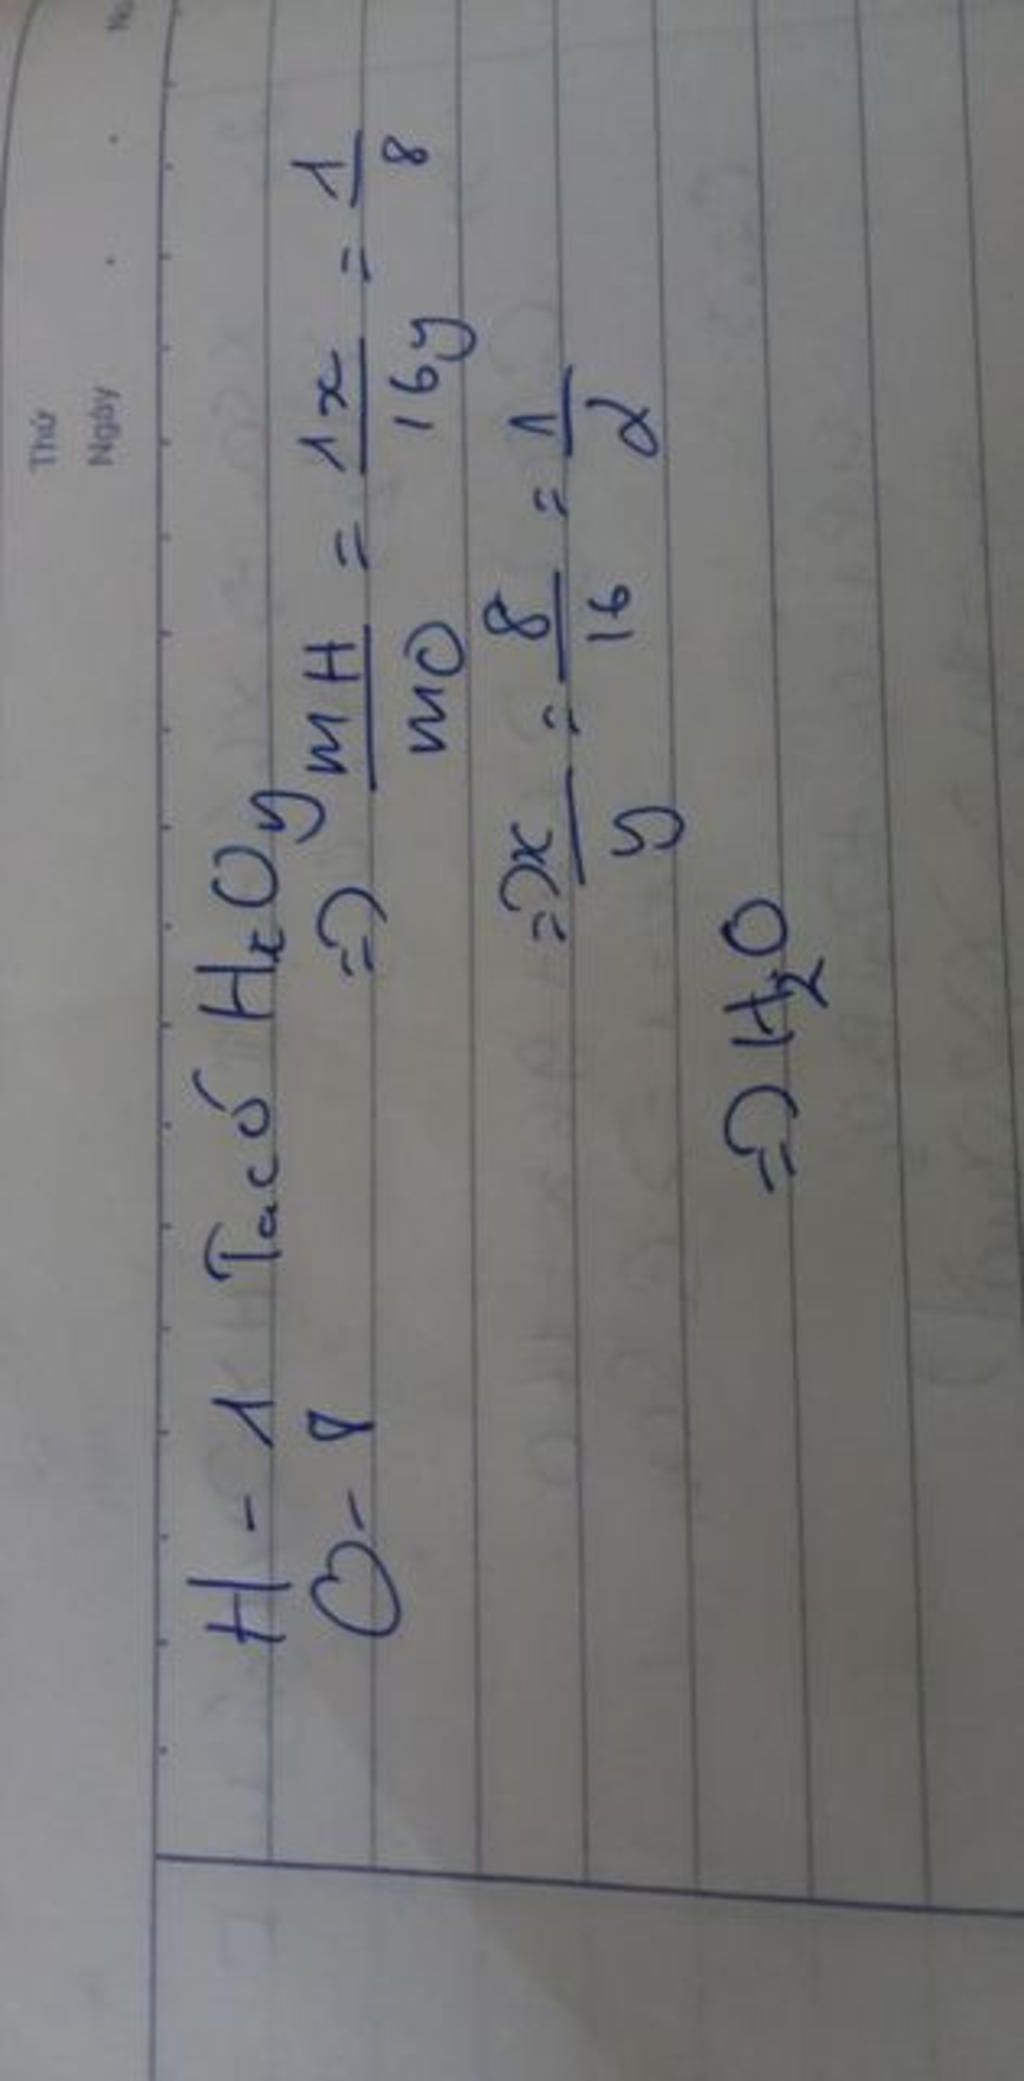 Thứ
Ngày
No
H - 1 Ta có HxOy
O - 8 => mH/mO = 1x/16y = 1/8
=> x/y = 8/16 = 1/2
=> H2O